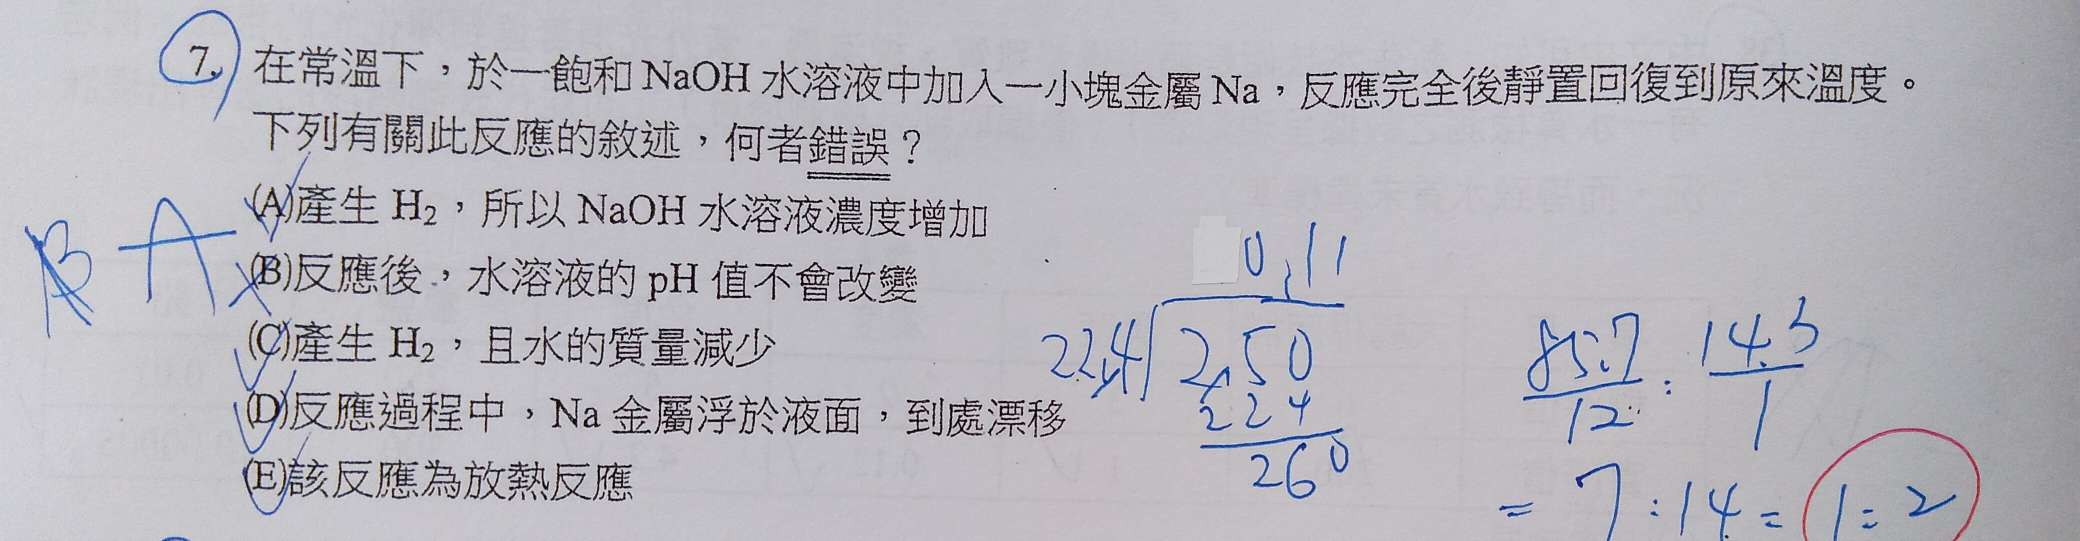 7. 在常溫下，於一飽和 NaOH 水溶液中加入一小塊金屬 Na，反應完全後靜置回復到原來溫度。
下列有關此反應的敘述，何者錯誤？
(A)產生 H₂，所以 NaOH 水溶液濃度增加
(B)反應後，水溶液的 pH 值不會改變
(C)產生 H₂，且水的質量減少
(D)反應過程中，Na 金屬浮於液面，到處漂移
(E)該反應為放熱反應
B A
0.11
22.4 2.50
224
260
85.7/12 : 14.3/1
= 7:14 = 1:2